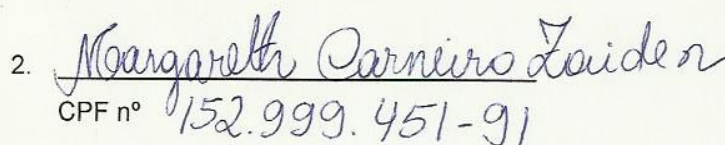 2. Margareth Carneiro Zaiden
CPF nº 152.999.451-91